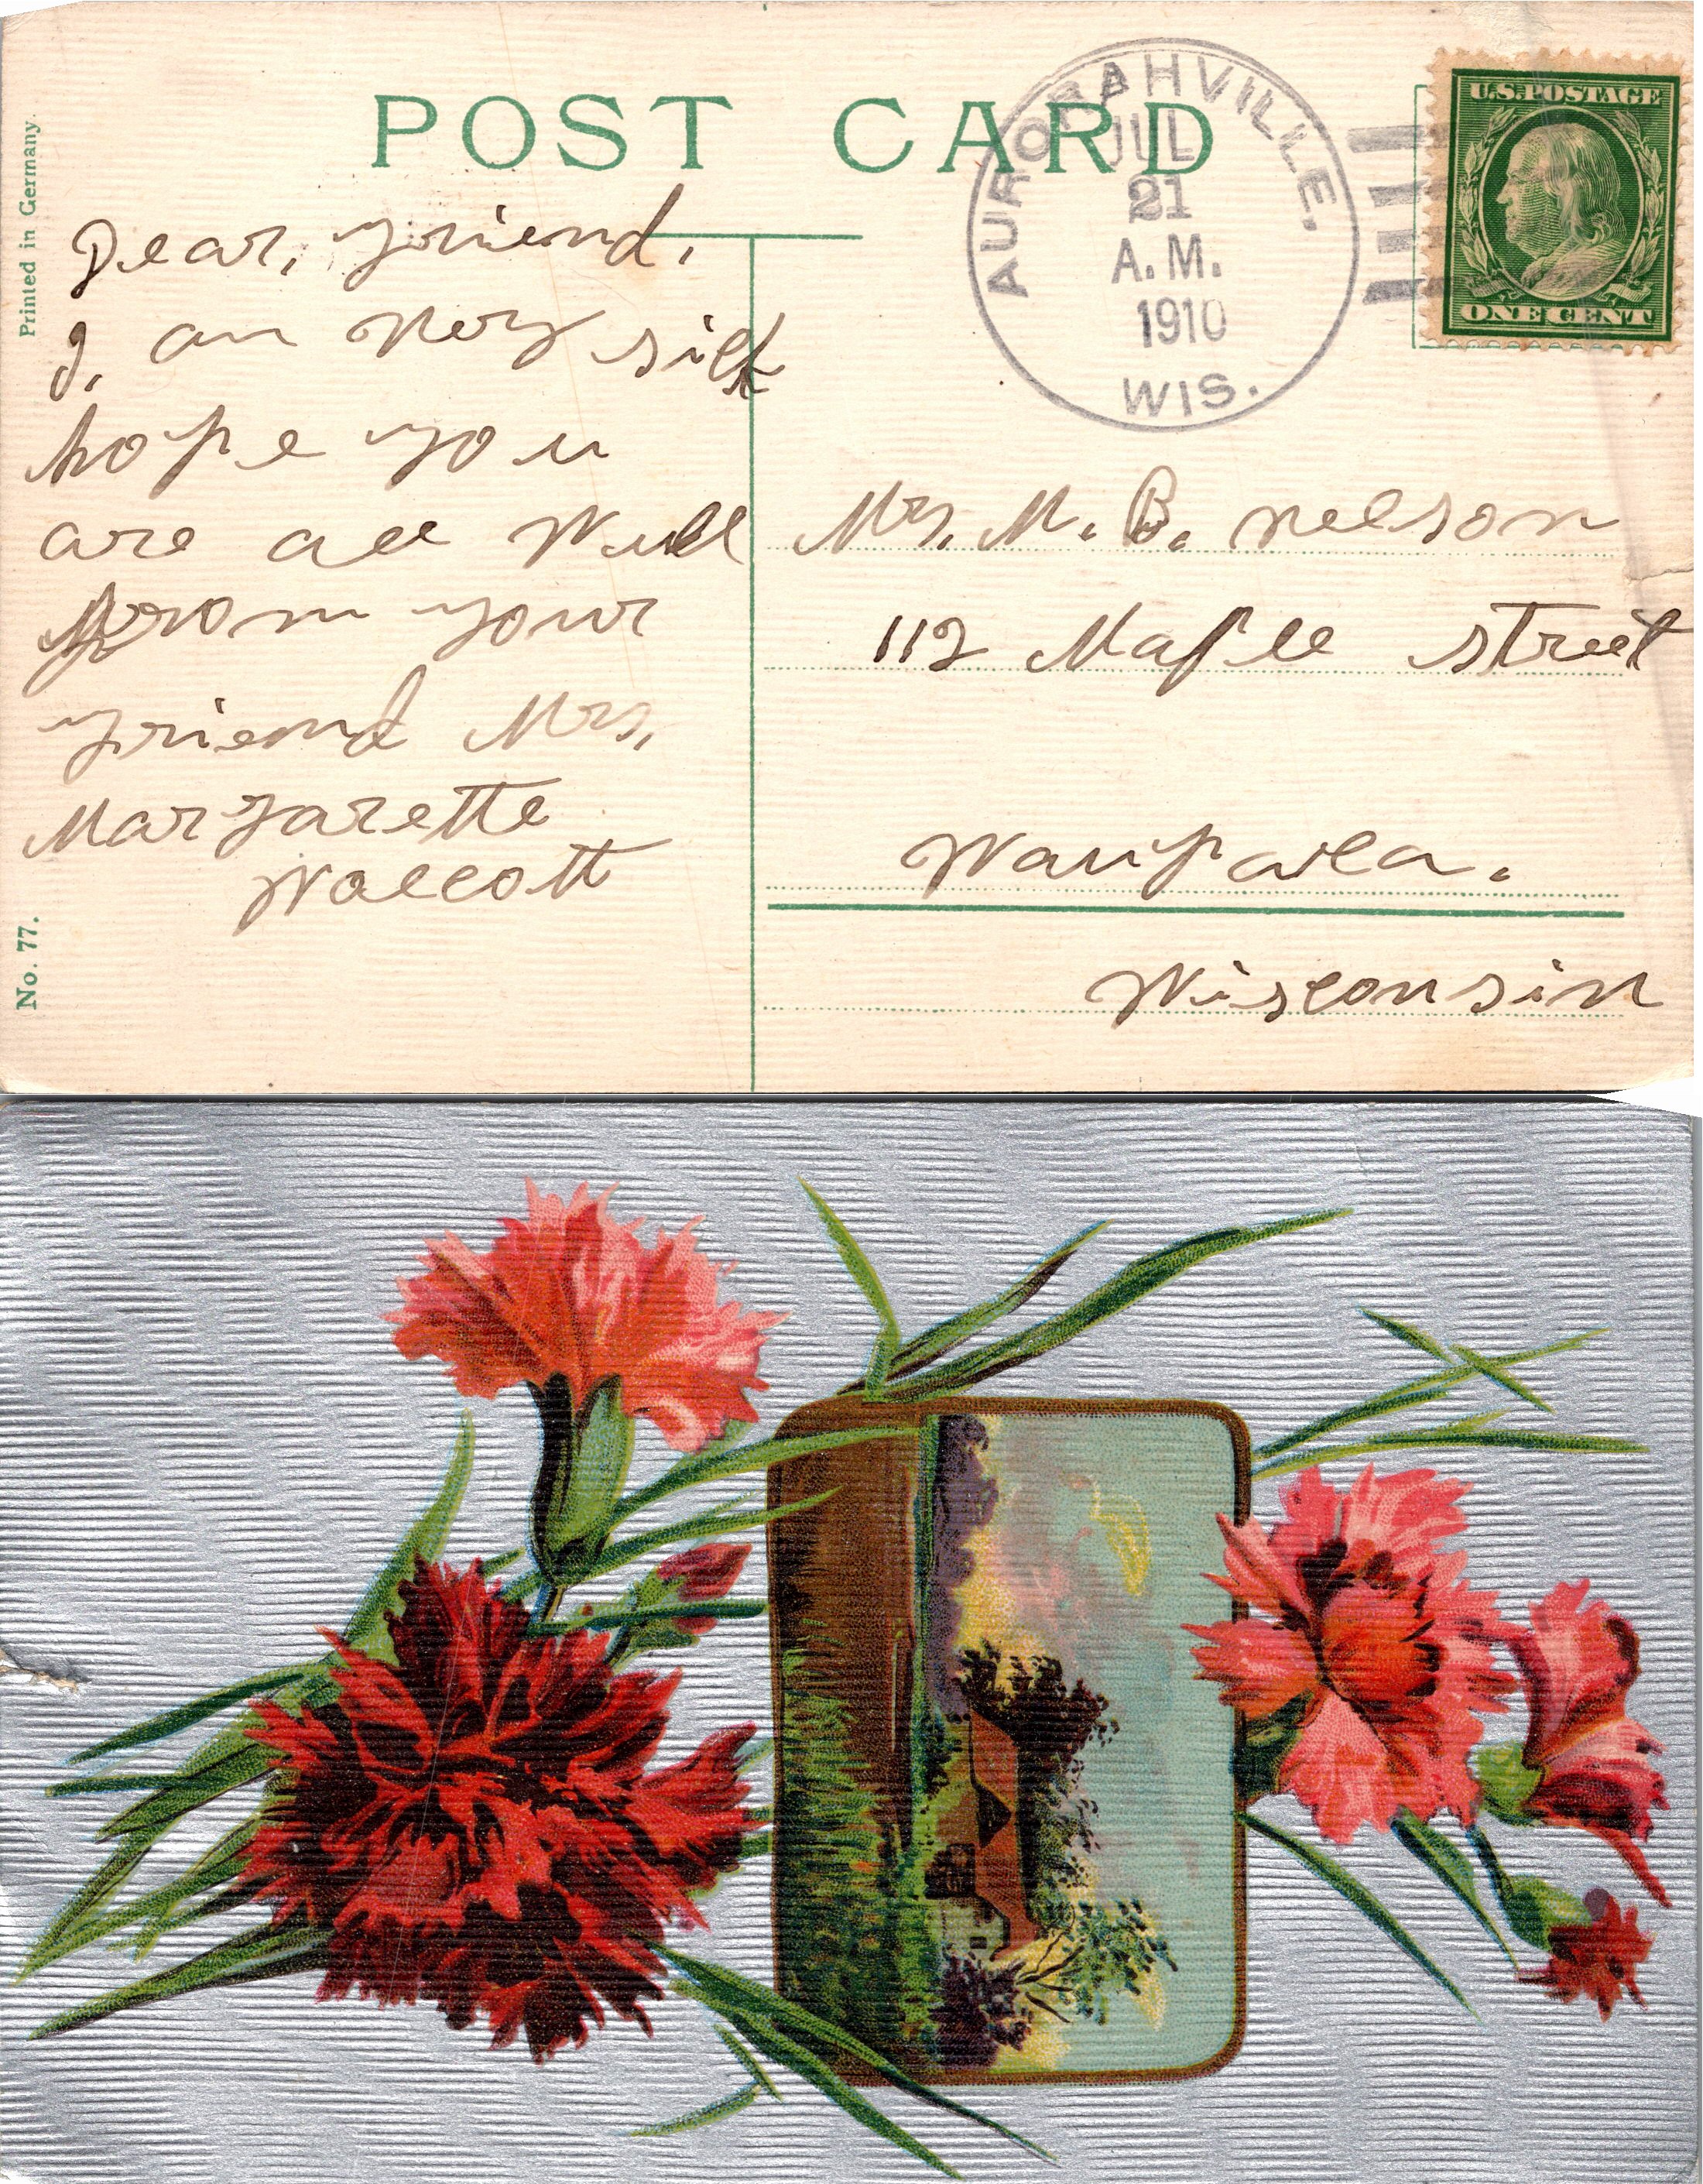 POST CARD
Printed in Germany.
No. 77.
AURORAHVILLE.
JUL
21
A.M.
1910
WIS.
U.S. POSTAGE
ONE CENT
Dear, friend,
I, am very sick
hope you
are all well
from your
friend Mrs,
Margarette
Walcott
Mrs, M. B. nelson
112 Maple street
Waupaca.
Wisconsin